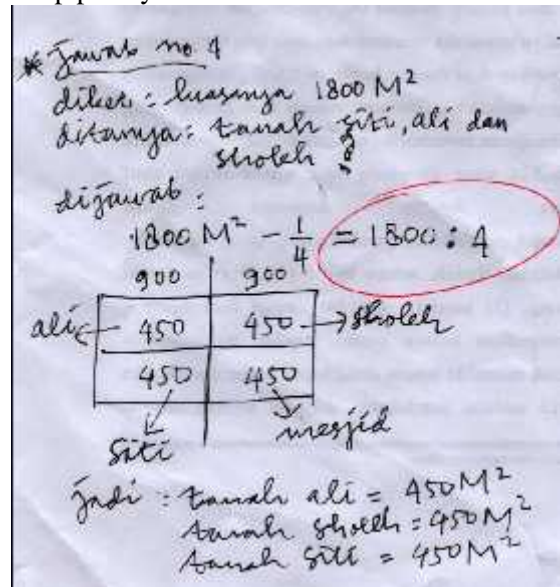 * Jawab no 4
diket : luasnya 1800 M²
ditanya : tanah siti, ali dan
sholeh ?
dijawab :
1800 M² - 1/4 = 1800 : 4
900 900
ali 450 450 sholeh
450 450
Siti mesjid
Jadi : tanah ali = 450 M²
tanah sholeh = 450 M²
tanah Siti = 450 M²